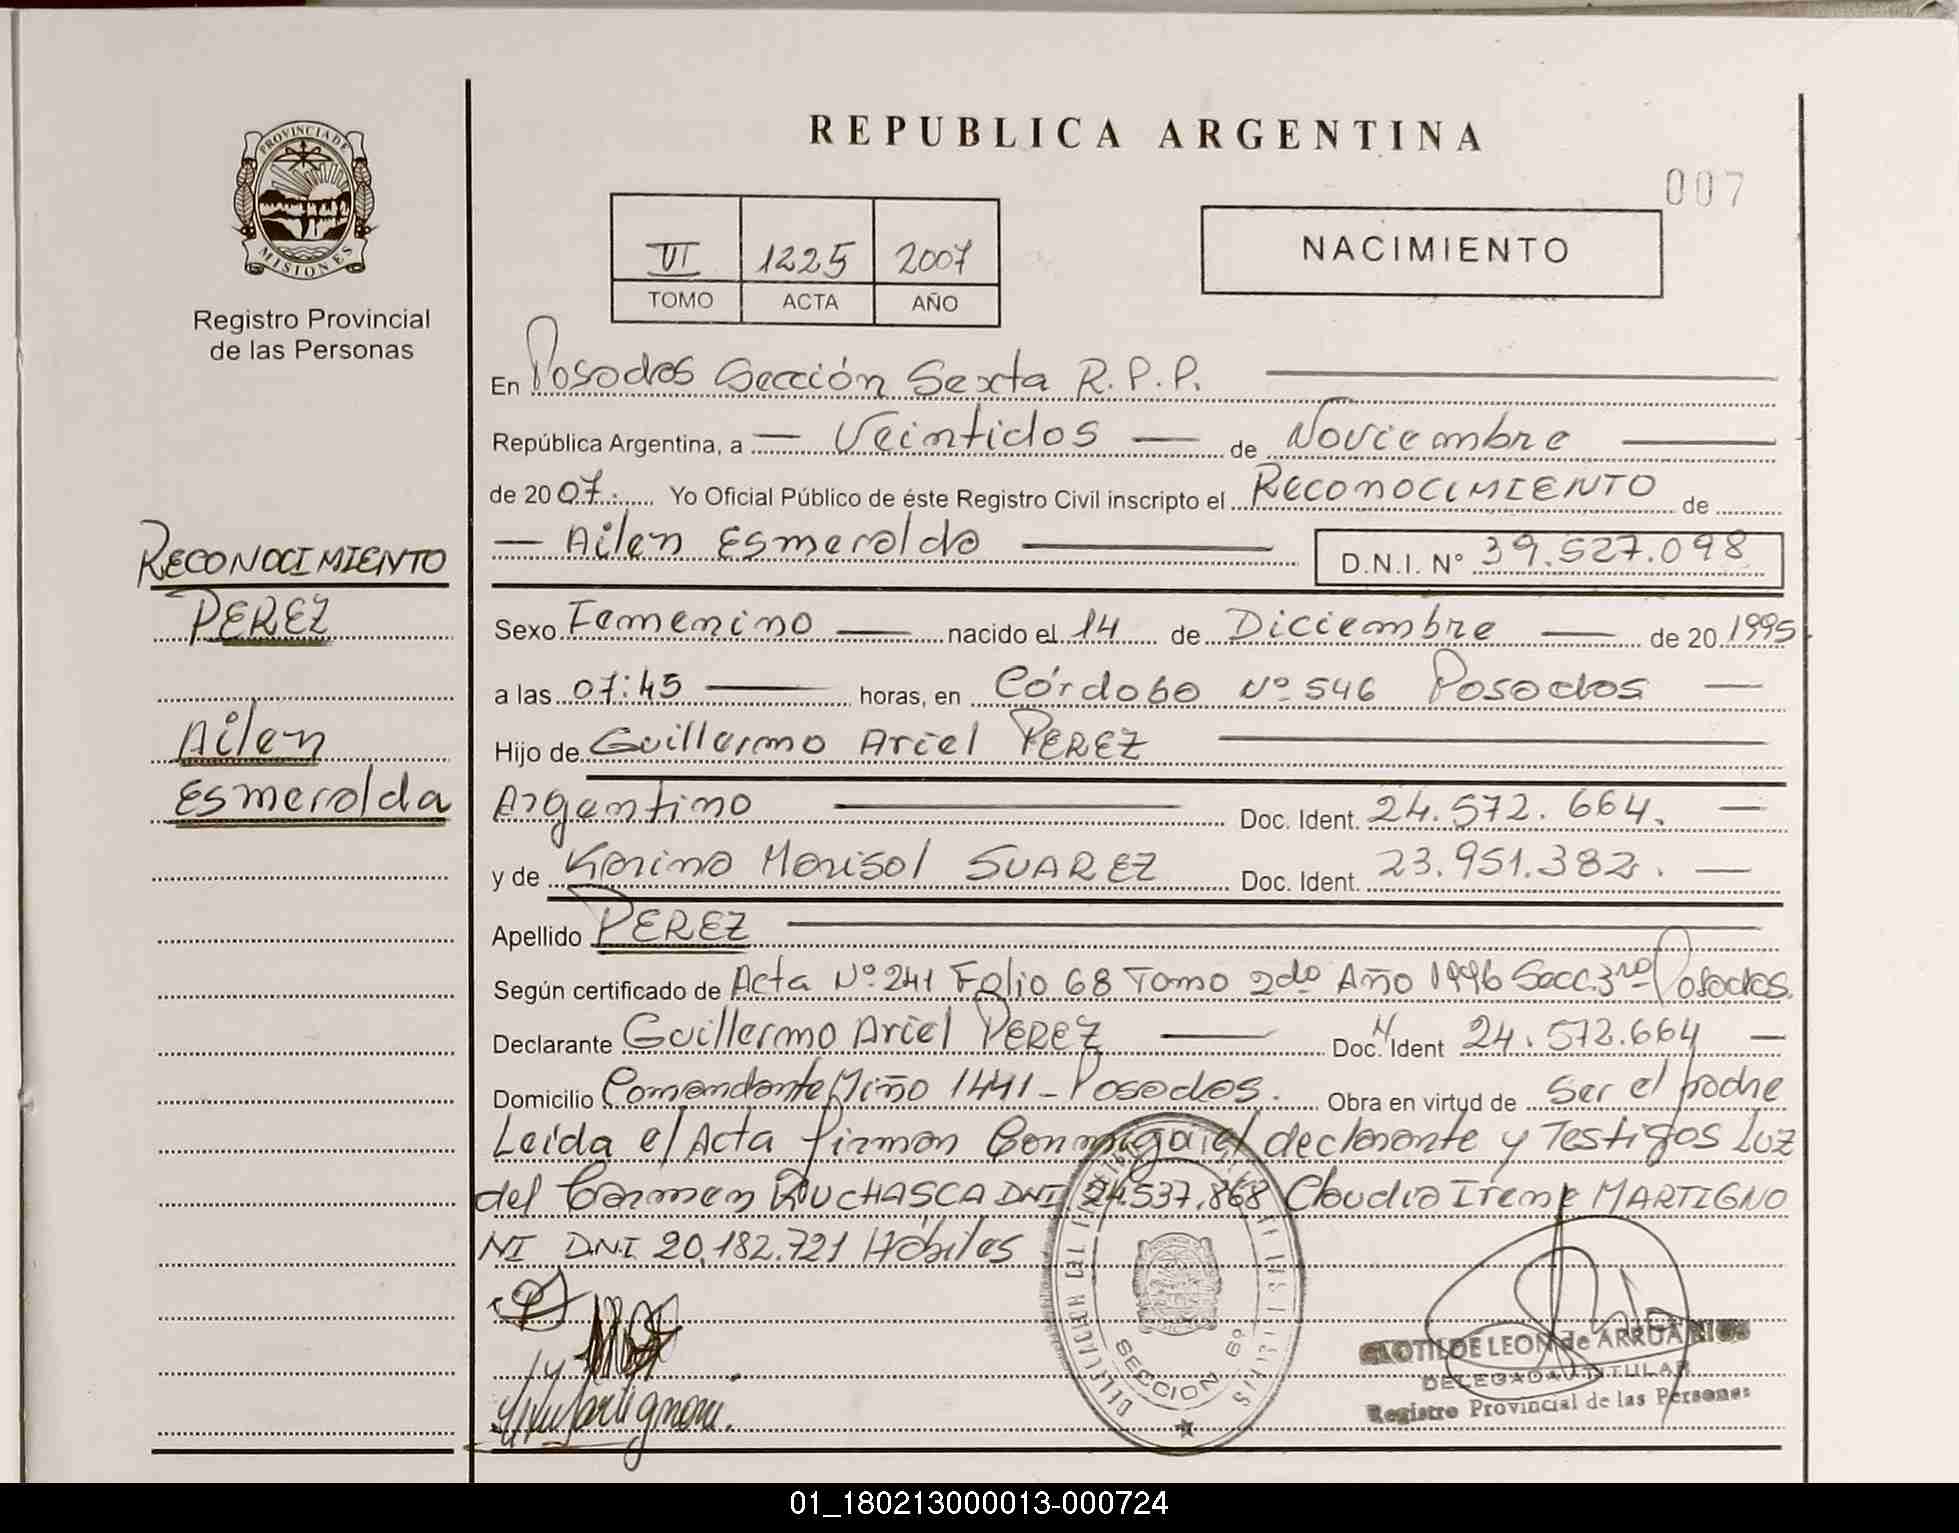 REPUBLICA ARGENTINA
007
PROVINCIA DE
MISIONES
Registro Provincial
de las Personas
VI 1225 2007
TOMO ACTA AÑO
NACIMIENTO
En Posadas Sección Sexta R.P.P.
República Argentina, a Veintidos de Noviembre
de 2007. Yo Oficial Público de éste Registro Civil inscripto el RECONOCIMIENTO de
Ailen Esmeralda D.N.I. Nº 39.527.098
RECONOCIMIENTO
PEREZ
Ailen
Esmeralda
Sexo Femenino nacido el 14 de Diciembre de 20 1995
a las 07:45 horas, en Córdoba Nº 546 Posadas
Hijo de Guillermo Ariel PEREZ
Argentino Doc. Ident. 24.572.664.
y de Karina Marisol SUAREZ Doc. Ident. 23.951.382.
Apellido PEREZ
Según certificado de Acta Nº 241 Folio 68 Tomo 2do Año 1996 Secc. 3ra Posadas.
Declarante Guillermo Ariel PEREZ Doc. Ident 24.572.664
Domicilio Comandante Miño 1441 - Posadas. Obra en virtud de Ser el padre
Leída el Acta firman Conmigo el declarante y Testigos Luz
del Carmen DNI 24.537.868 Claudia Irene MARTIGNO
NI D.N.I. 20.182.721 Hábiles
SECCION 6º
CLOTILDE LEON de ARRUA RIOS
DELEGADA TITULAR
Registro Provincial de las Personas
01_180213000013-000724